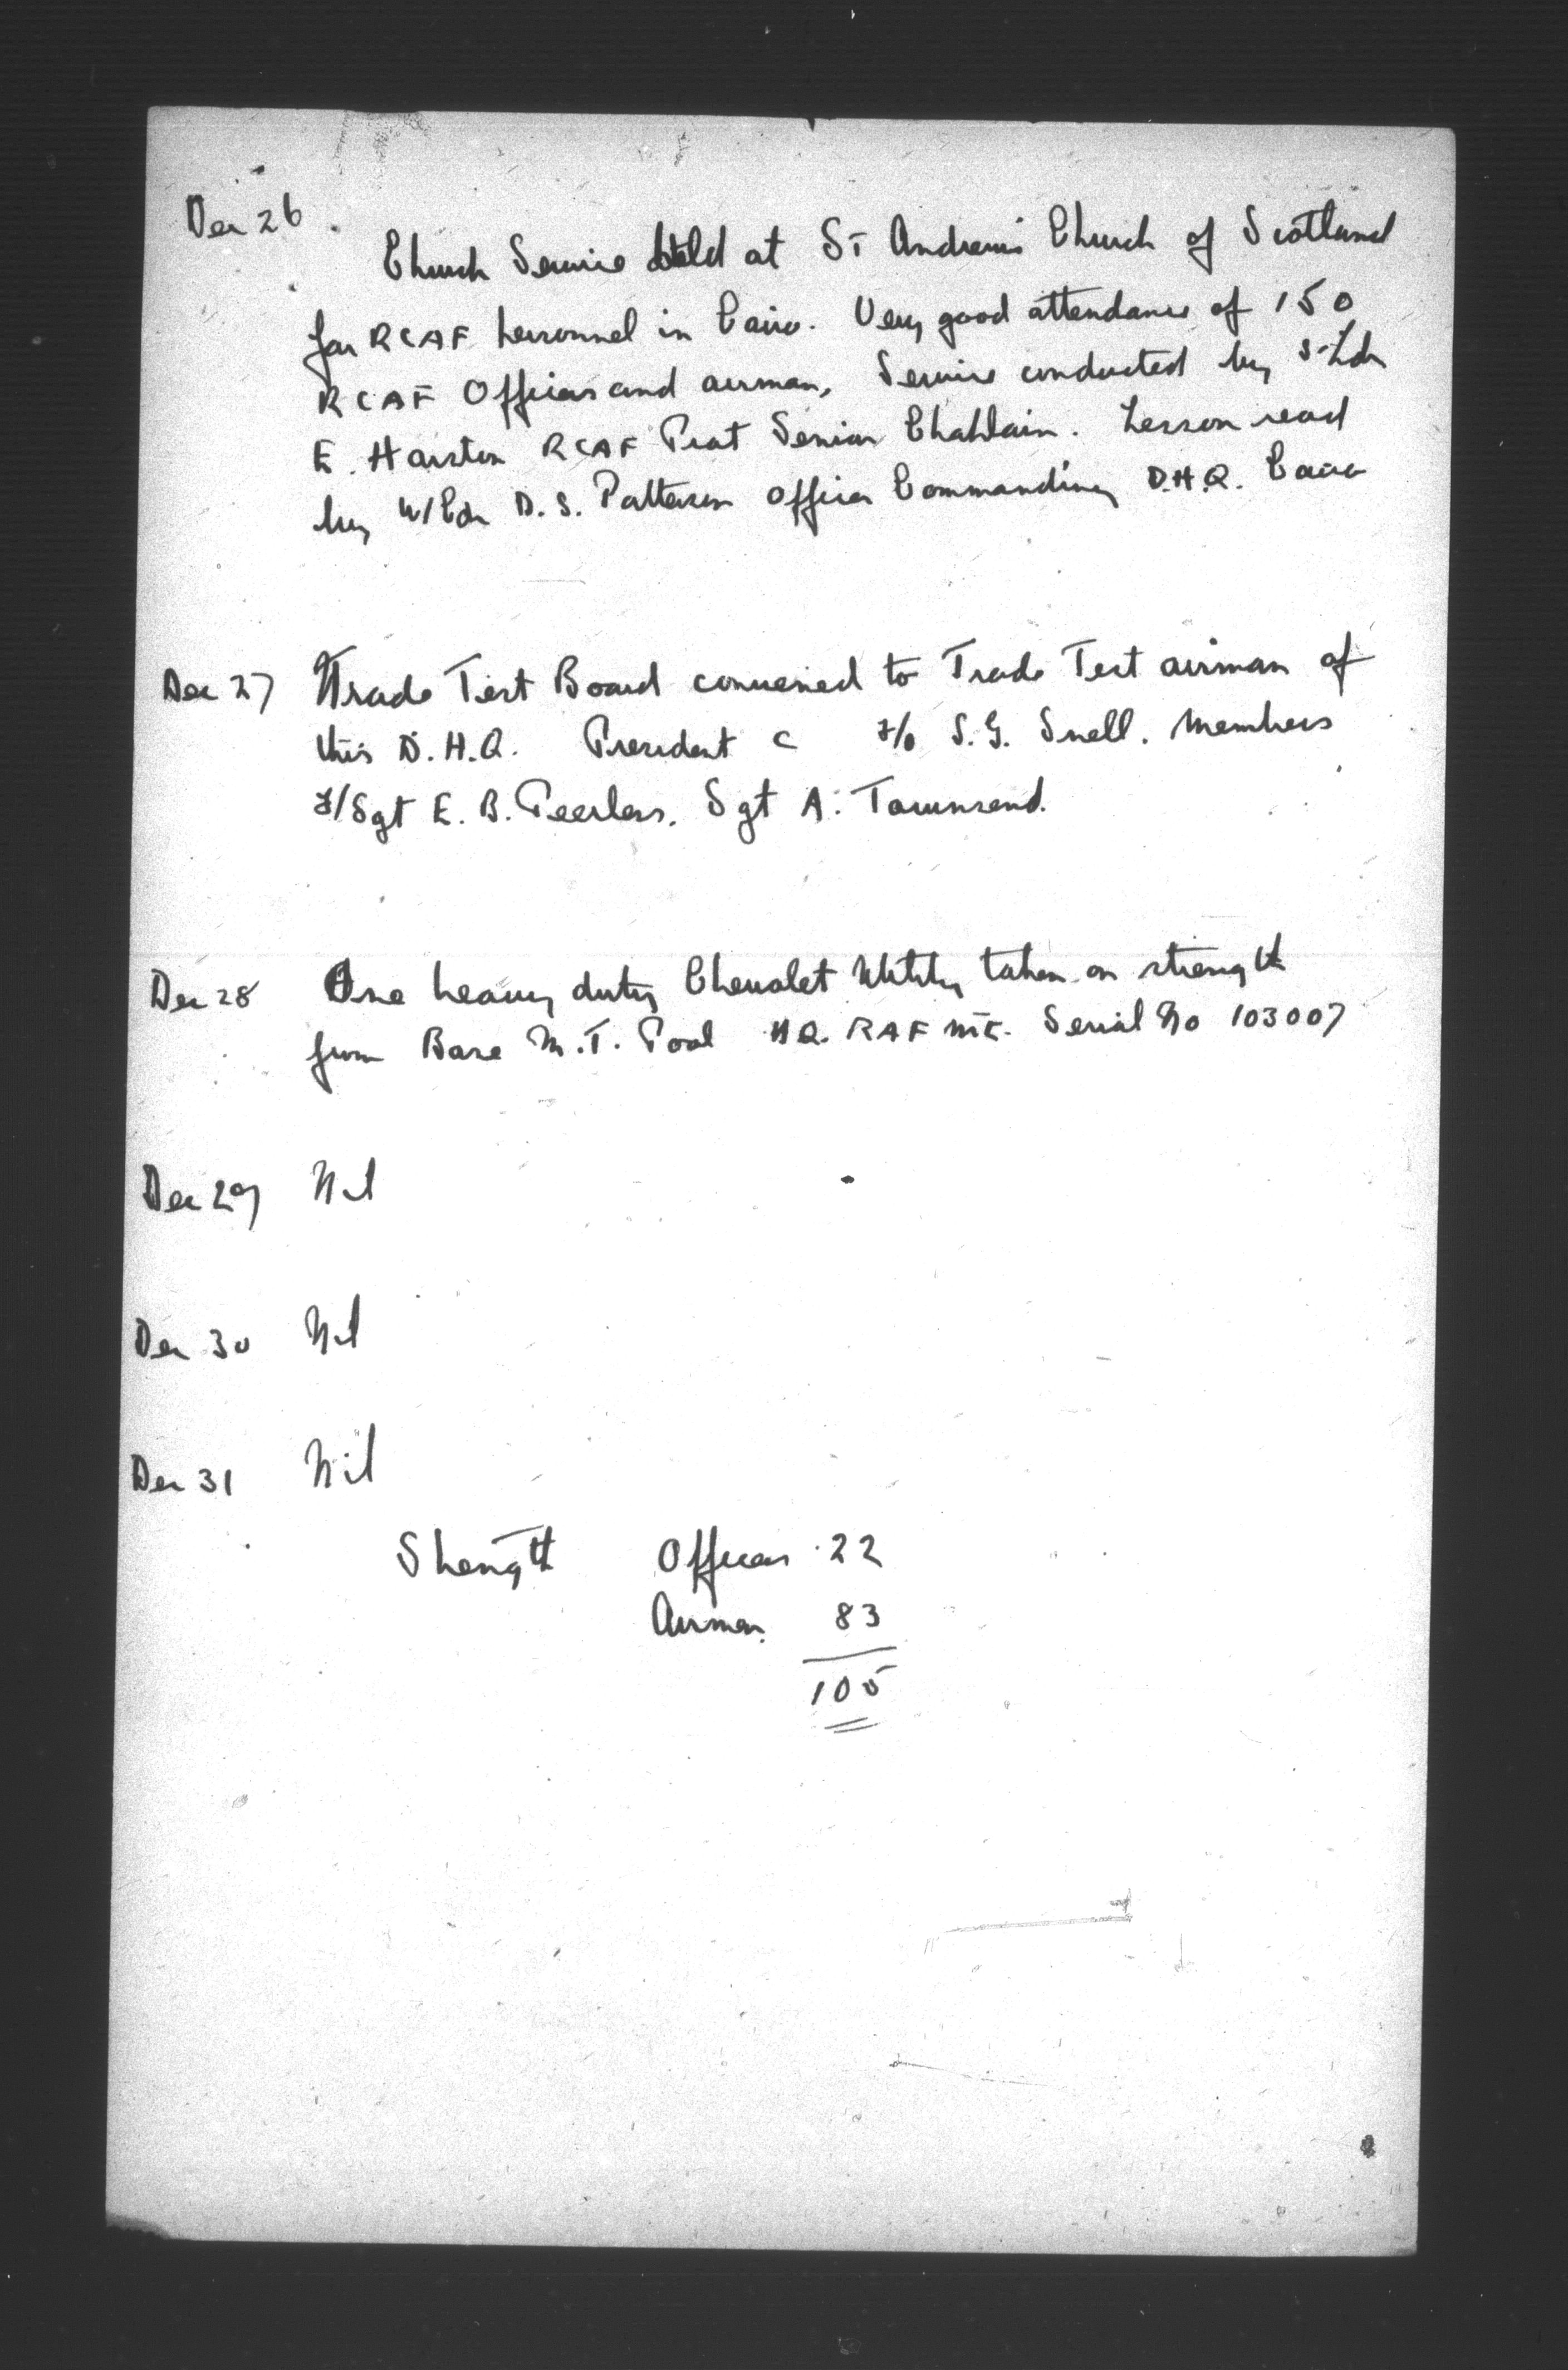 Dec 26.
Church Service held at St Andrew's Church of Scotland
for RCAF personnel in Cairo. Very good attendance of 150
RCAF Officers and airman, Service conducted by S/Ldr
E. Harston RCAF Prot Senior Chaplain. Lesson read
by W/Cdr D. S. Patterson Officer Commanding D.H.Q. Cairo
Dec 27 Trade Test Board convened to Trade Test airman of
this D.H.Q. President F/O S.G. Snell. Members
F/Sgt E. B. Peerless. Sgt A. Townsend.
Dec 28 One heavy duty Chevrolet Utility taken on strength
from Base M.T. Pool HQ. RAF ME. Serial No 103007
Dec 29 Nil
Dec 30 Nil
Dec 31 Nil
Strength Officers 22
Airmen 83
105